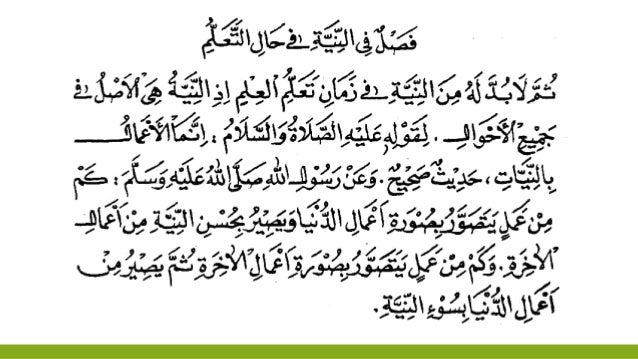 فَصْلٌ فِي النِّيَّةِ فِي حَالِ التَّعَلُّمِ
ثُمَّ لَابُدَّ لَهُ مِنَ النِّيَّةِ فِي زَمَانِ تَعَلُّمِ الْعِلْمِ اِذِ النِّيَّةُ هِيَ الْاَصْلُ فِي
جَمِيْعِ الْاَحْوَالِ. لِقَوْلِهِ عَلَيْهِ الصَّلَاةُ وَالسَّلَامُ: اِنَّمَا الْاَعْمَالُ
بِالنِّيَّاتِ، حَدِيْثٌ صَحِيْحٌ. وَعَنْ رَسُوْلِ اللهِ صَلَّى اللهُ عَلَيْهِ وَسَلَّمَ: كَمْ
مِنْ عَمَلٍ يَتَصَوَّرُ بِصُوْرَةِ اَعْمَالِ الدُّنْيَا وَيَصِيْرُ بِحُسْنِ النِّيَّةِ مِنْ اَعْمَالِ
الْاٰخِرَةِ. وَكَمْ مِنْ عَمَلٍ يَتَصَوَّرُ بِصُوْرَةِ اَعْمَالِ الْاٰخِرَةِ ثُمَّ يَصِيْرُ مِنْ
اَعْمَالِ الدُّنْيَا بِسُوْءِ النِّيَّةِ.